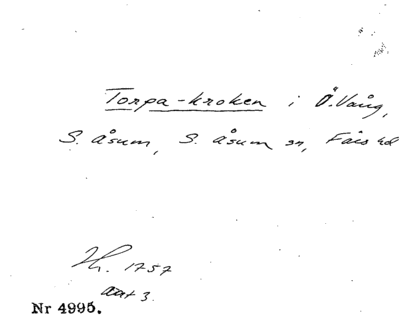 Torpa-kroken i Ö. Vång,
S. Åsum, S. Åsum sn, Färs hd
Hs. 1757
akt 3.
Nr 4995.